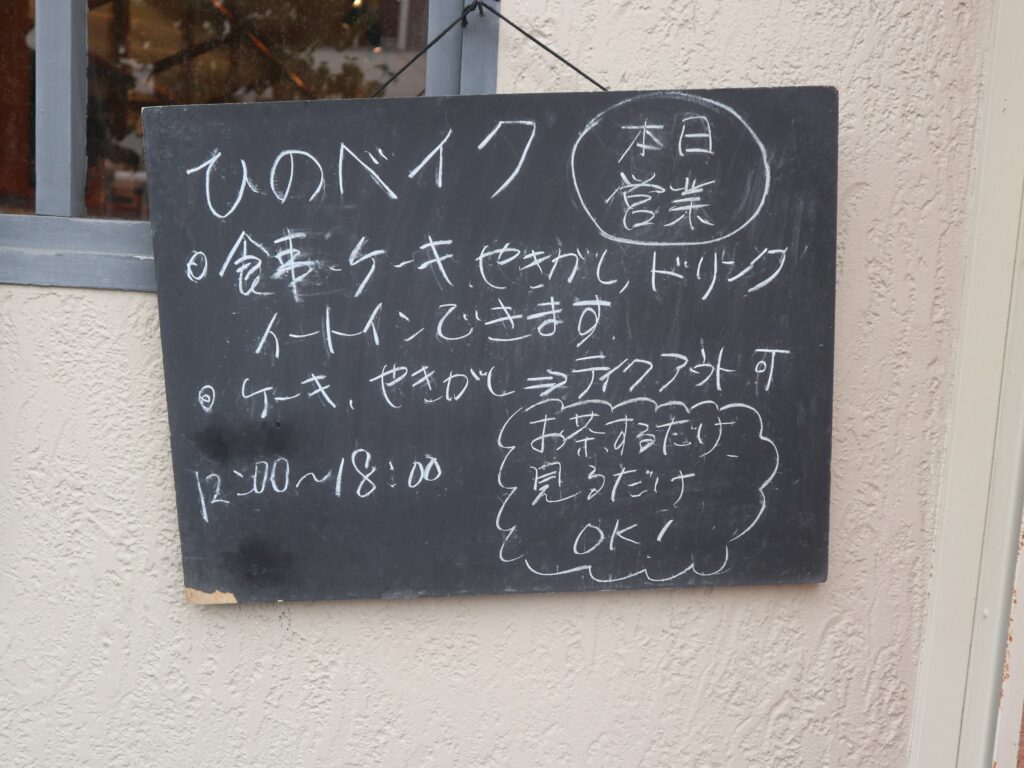 ひのベイク
本日
営業
◎食事、ケーキ、やきがし、ドリンク
イートインできます。
◎ケーキ、やきがし⇒テイクアウト可
12:00〜18:00
お茶するだけ、
見るだけ
OK!